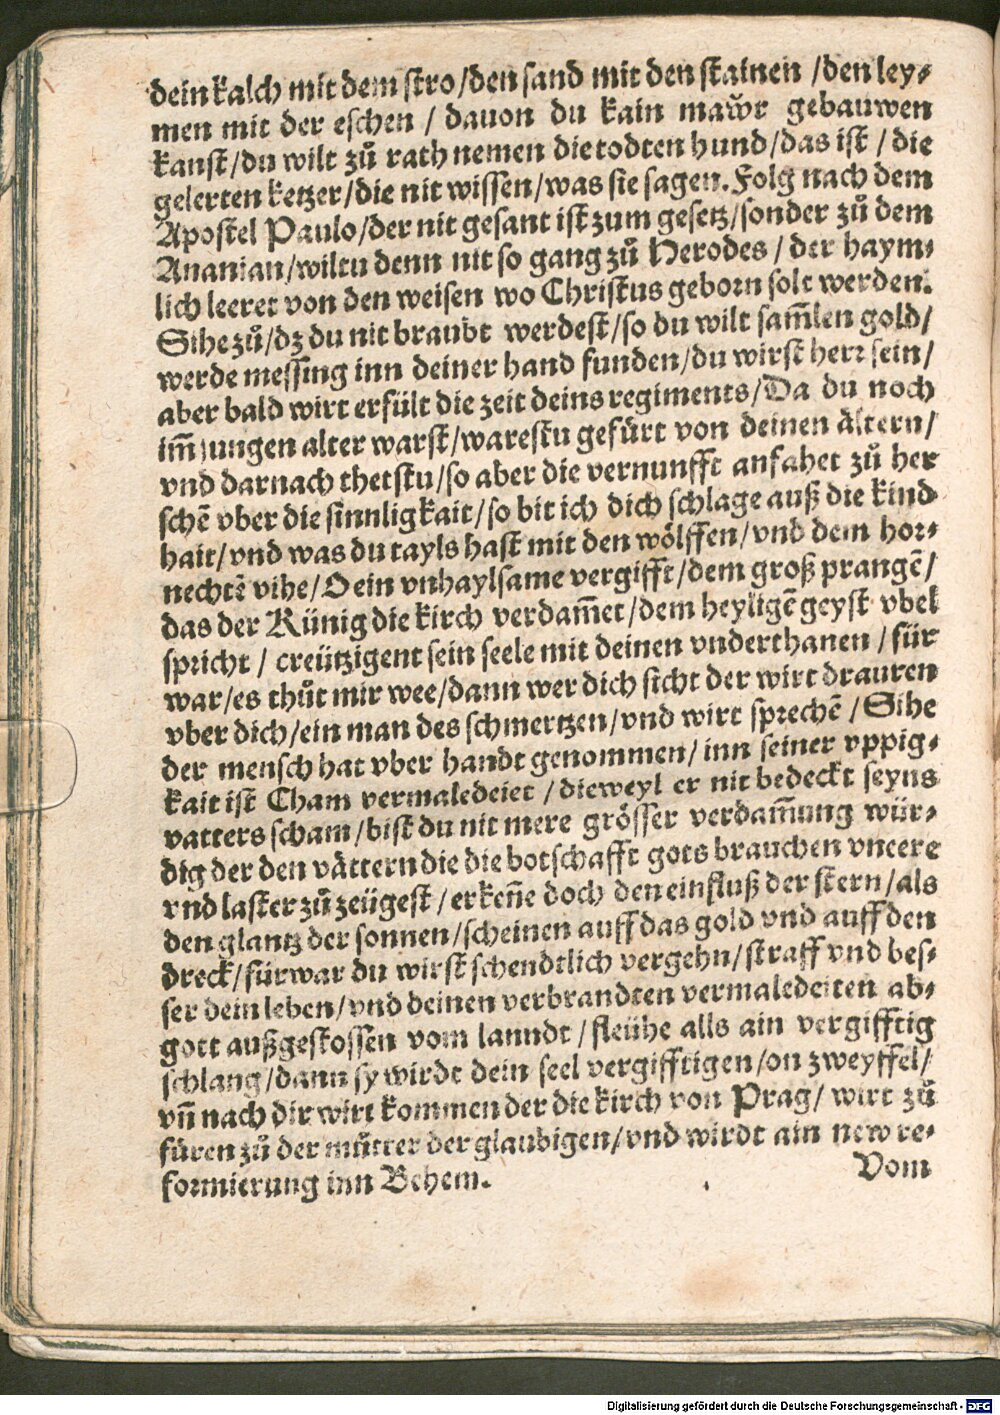 dein kalch mit dem stro/den sand mit den stainen /den ley⸗
men mit der eschen / dauon du kain maw̃r gebauwen
kanst/du wilt zů rath nemen die todten hund/das ist / die
gelerten ketzer/die nit wissen/was sie sagen. Folg nach dem
Apostel Paulo/der nit gesant ist zum gesetz/sonder zů dem
Ananian/wiltu denn nit so gang zů Herodes / der haym⸗
lich leeret von den weisen wo Christus geborn solt werden.
Sihe zů/dz du nit braubt werdest/so du wilt sam̃len gold/
werde messing inn deiner hand funden/du wirst herr sein/
aber bald wirt erfült die zeit deins regiments/Da du noch
im̃ jungen alter warst/warestu gefürt von deinen ältern/
vnd darnach thetstu/so aber die vernunfft anfahet zů her
schẽ vber die sinnligkait/so bit ich dich schlage auß die kind
hait/vnd was du tayls hast mit den wölffen/vnd dem hor⸗
nechtẽ vihe/O ein vnhaylsame vergifft/dem groß prangẽ/
das der Künig die kirch verdam̃et/dem heyligẽ geyst vbel
spricht / creützigent sein seele mit deinen vnderthanen / für
war/es thůt mir wee/dann wer dich sicht der wirt drauren
vber dich/ein man des schmertzen/vnd wirt sprechẽ / Sihe
der mensch hat vber handt genommen/ inn seiner vppig⸗
kait ist Cham vermaledeiet / dieweyl er nit bedeckt seyns
vatters scham/bist du nit mere grösser verdam̃ung wür⸗
dig der den vättern die die botschafft gots brauchen vneere
vnd laster zů zeügest / erkeñe doch den einfluß der stern/als
den glantz der sonnen/scheinen auff das gold vnd auff den
dreck/fürwar du wirst schendtlich vergehn/straff vnd bes⸗
ser dein leben/vnd deinen verbrandten vermaledeiten ab⸗
gott außgestossen vom lanndt / fleühe alls ain vergifftig
schlang/dann sy wirdt dein seel vergifftigen/on zweyffel/
vñ nach dir wirt kommen der die kirch von Prag/ wirt zů
füren zů der můtter der glaubigen/vnd wirdt ain new re⸗
formierung inn Behem.
Vom
Digitalisierung gefördert durch die Deutsche Forschungsgemeinschaft - DFG